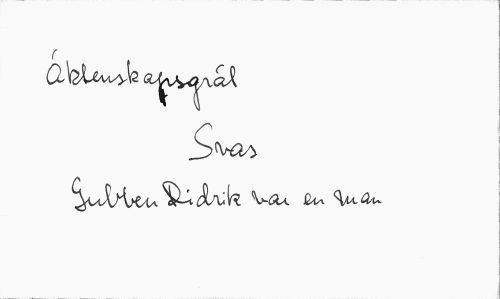 Áktenskapsgrál
Svas
Gubben Didrik var en man